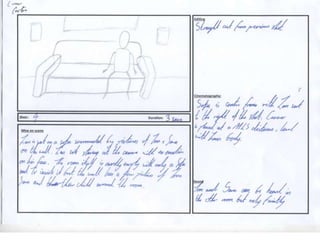 Editing
Straight cut from previous shot
Cinematography
Sofa is center frame with Liam sat
to the right of the shot. Camera
is placed at a MLS distance, level
with Liams body.
Shot: 4
Duration: 3 secs
Mise en scene
Liam sat on a sofa surrounded by pictures of him & Jane
on the wall. Liam sits staring at the camera with no emotion
on his face. The room itself is mostly empty with only a sofa
and to it but the wall has a few pictures of Liam
Jane and their child around the room.
Sound
Liam and Jane can be heard in
the other room but only faintly